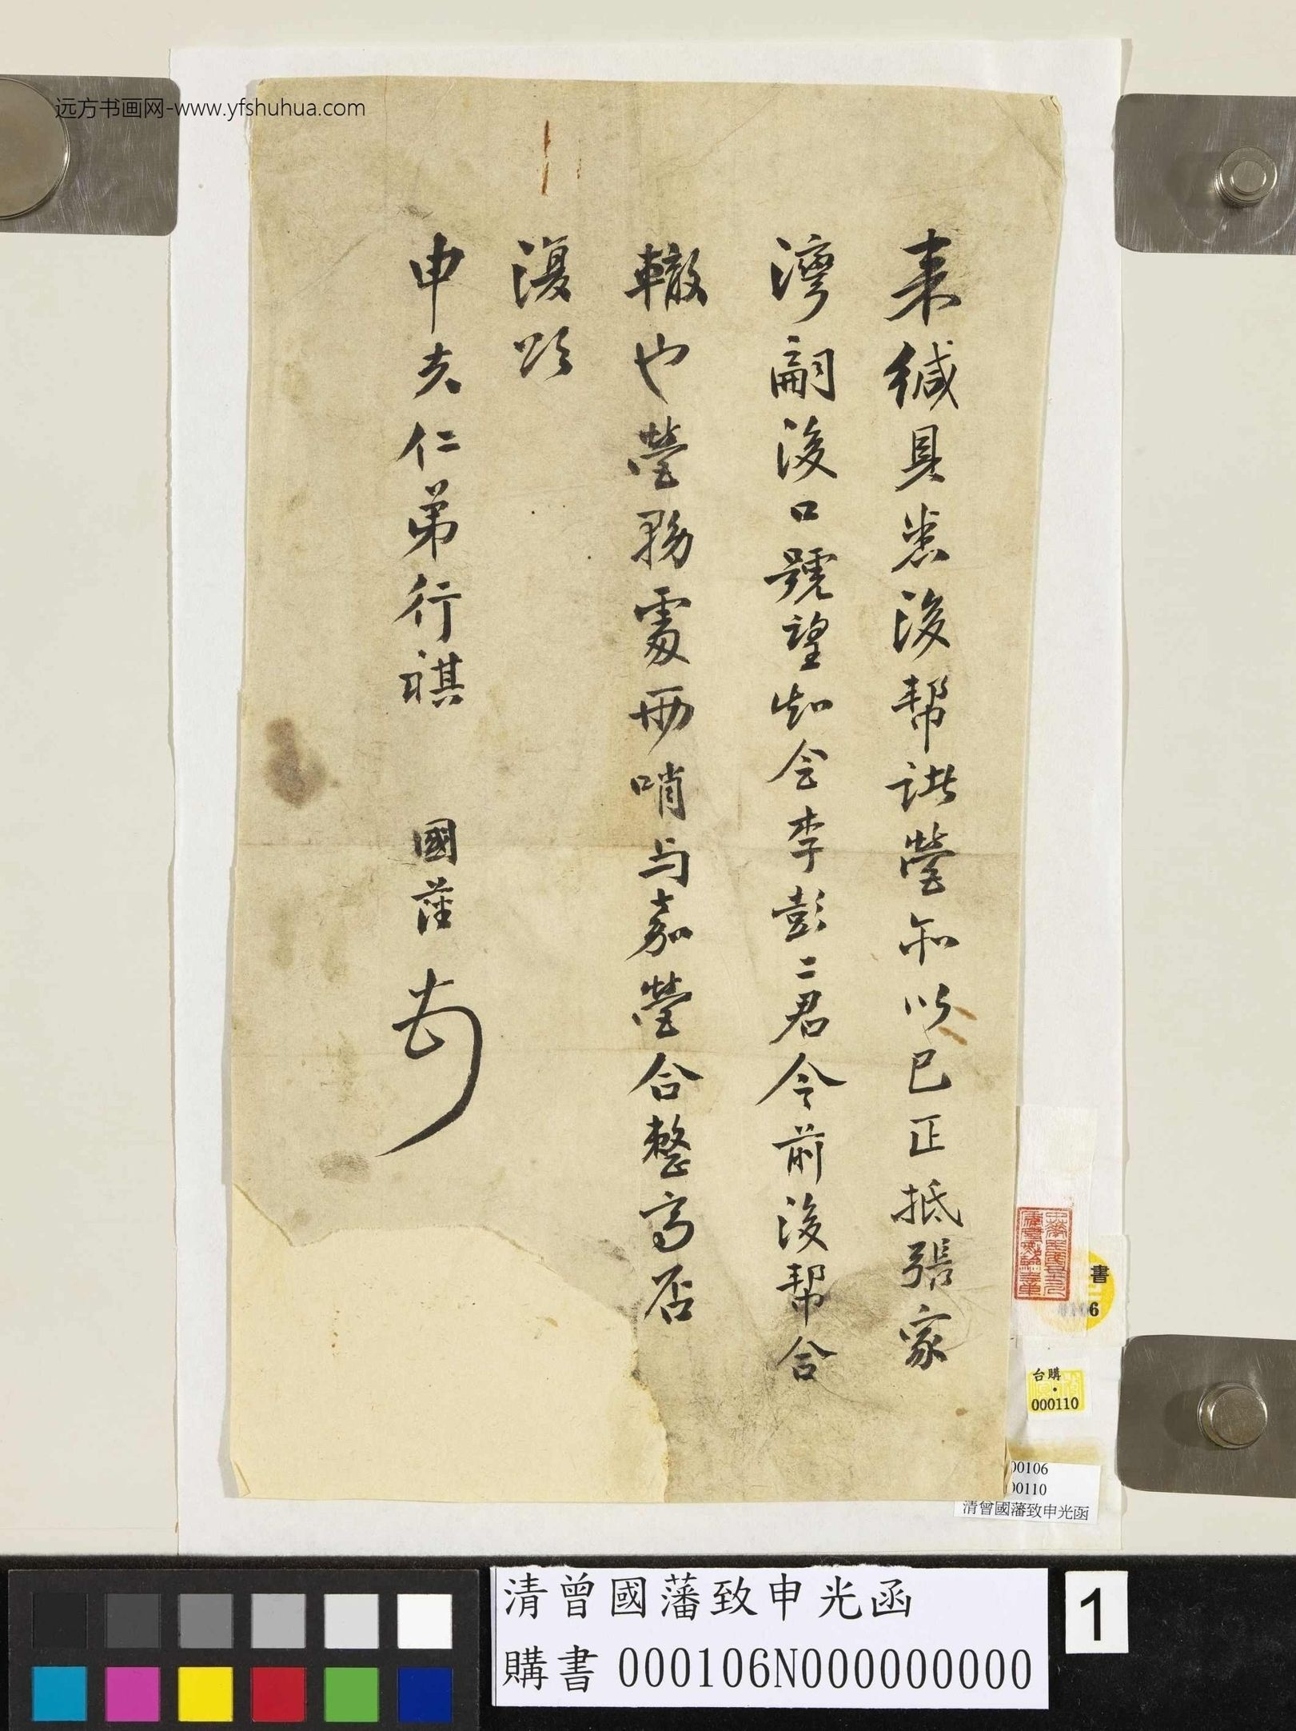 远方书画网-www.yfshuhua.com
来緘具悉後帮諸營和以巳正抵張家
灣嗣後口號望知会李彭二君令前後帮合
轍也營務處兩哨与嘉營合整高否
復頌
申夫仁弟行祺 國藩
書
6
台購
000110
00106
00110
清曾國藩致申光函
清曾國藩致申光函
購書 000106N000000000
1